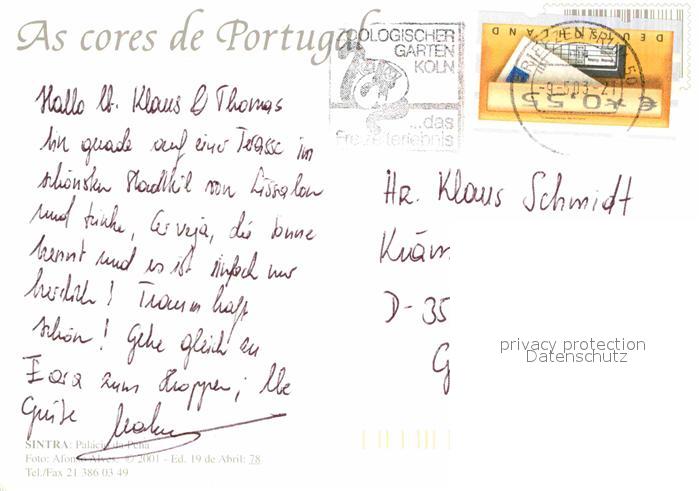 As cores de Portugal
OOLOGISCHER
GARTEN
KÖLN
...das
Freizeiterlebnis
DEUTSCHLAND
BRIEFZENTRUM 50
-9-5.03-21
€*0,55
Hallo lb. Klaus & Thomas
bin gerade auf einer Terasse im
schönsten Stadtteil von Lissabon
und trinke Cerveja, die Sonne
brennt und es ist einfach nur
herrlich! Traumhaft
schön! Gehe gleich zu
Zara zum Shoppen; lbe
Grüße
Hr. Klaus Schmidt
D-35
G
privacy protection
Datenschutz
SINTRA: Palácio da Pena
Foto: Afonso Alves. © 2001 - Ed. 19 de Abril: 78
Tel./Fax 21 386 03 49